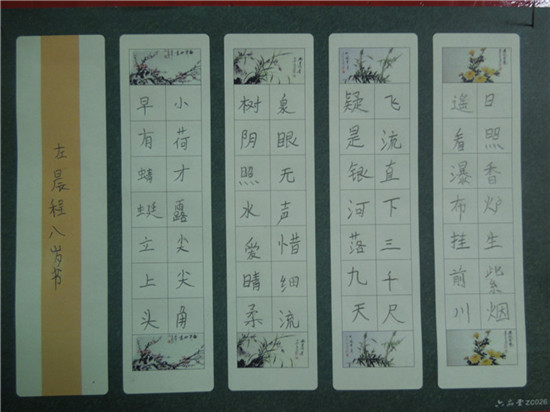 日照香炉生紫烟
遥看瀑布挂前川
飞流直下三千尺
疑是银河落九天
泉眼无声惜细流
树阴照水爱晴柔
小荷才露尖尖角
早有蜻蜓立上头
左晨程八岁书
六品堂ZC026